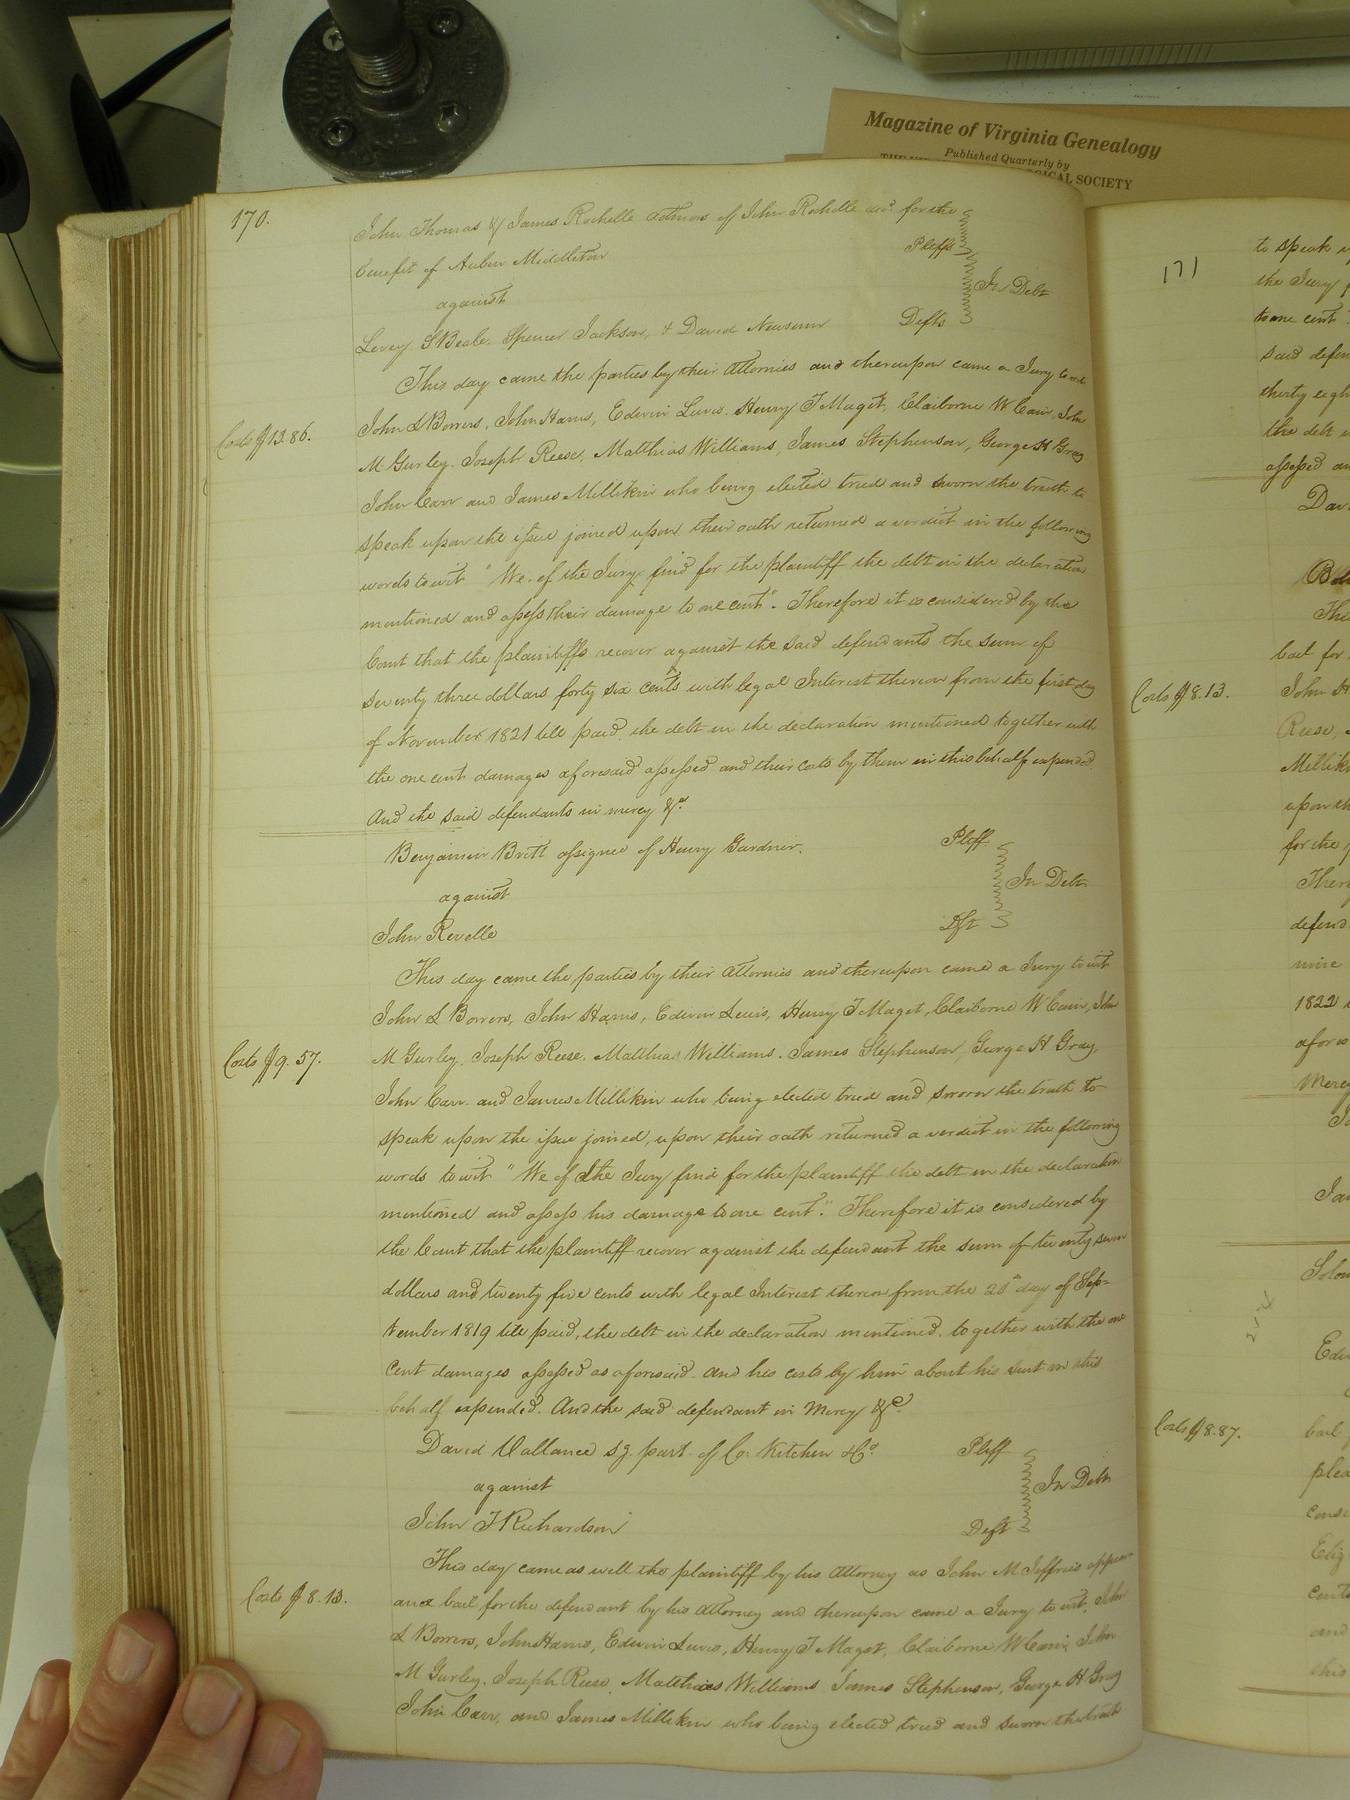 Magazine of Virginia Genealogy
Published Quarterly by
SOCIETY
170.
John Thomas & James Rochelle admors of John Rochelle decd for the
benefit of Auben Middleton Pltffs
against In Debt
Levey S Beale, Spencer Jackson, & David Newsum Defts
This day came the parties by their Attornies and thereupon came a Jury to wit
John L Bowers, John Harris, Edwin Lewis, Henry T Maget, Claiborne W Cain, John
Costs $13.86.
M Gurley, Joseph Reese, Matthias Williams, James Stephenson, George H Gray
John Carr and James Millikin who being elected tried and sworn the truth to
speak upon the issue joined upon their oath returned a verdict in the following
words to wit "We of the Jury find for the plaintiff the debt in the declaration
mentioned and assess their damage to one cent". Therefore it is considered by the
Court that the plaintiffs recover against the said defendants the sum of
seventy three dollars forty six cents with legal Interest thereon from the first day
of November 1821 till paid, the debt in the declaration mentioned together with
the one cent damages aforesaid assessed and their costs by them in this behalf expended
And the said defendants in mercy &c.
Benjamin Britt assignee of Henry Gardner. Pltff
against In Debt
John Revelle Dft
This day came the parties by their Attornies and thereupon came a Jury to wit
John L Bowers, John Harris, Edwin Lewis, Henry T Maget, Claiborne W Cain, John
Costs $9.57.
M Gurley, Joseph Reese, Matthias Williams, James Stephenson, George H Gray,
John Carr and James Millikin who being elected tried and sworn the truth to
speak upon the issue joined, upon their oath returned a verdict in the following
words to wit "We of the Jury find for the plaintiff the debt in the declaration
mentioned and assess his damage to one cent." Therefore it is considered by
the Court that the plaintiff recover against the defendant the sum of twenty seven
dollars and twenty five cents with legal Interest thereon from the 20th day of Sep=
tember 1819 till paid, the debt in the declaration mentioned, together with the one
cent damages assessed as aforesaid and his costs by him about his suit in this
behalf expended. And the said defendant in Mercy &c.
David Vallance sg. part. of Co. Kitchen & Co. Pltff
against In Debt
John T Richardson Deft
This day came as well the plaintiff by his Attorney as John M Jeffries appear
Costs $8.13.
ance bail for the defendant by his Attorney and thereupon came a Jury to wit, John
L Bowers, John Harris, Edwin Lewis, Henry T Maget, Claiborne W Cain, John
M Gurley, Joseph Reese, Matthias Williams James Stephenson, George H Gray
John Carr, and James Millikin who being elected tried and sworn the truth
171
to speak
the Jury
to one cent
said defen
thirty eigh
the debt
assessed an
Davi
This
bail for
Costs $8.13.
John
Reese,
Milliki
upon th
for the
There
defend
nine
1822
afores
Mercy
Ja
Solom
Edw
Costs $8.87.
bail
plea
conse
Eliz
cents
and
this